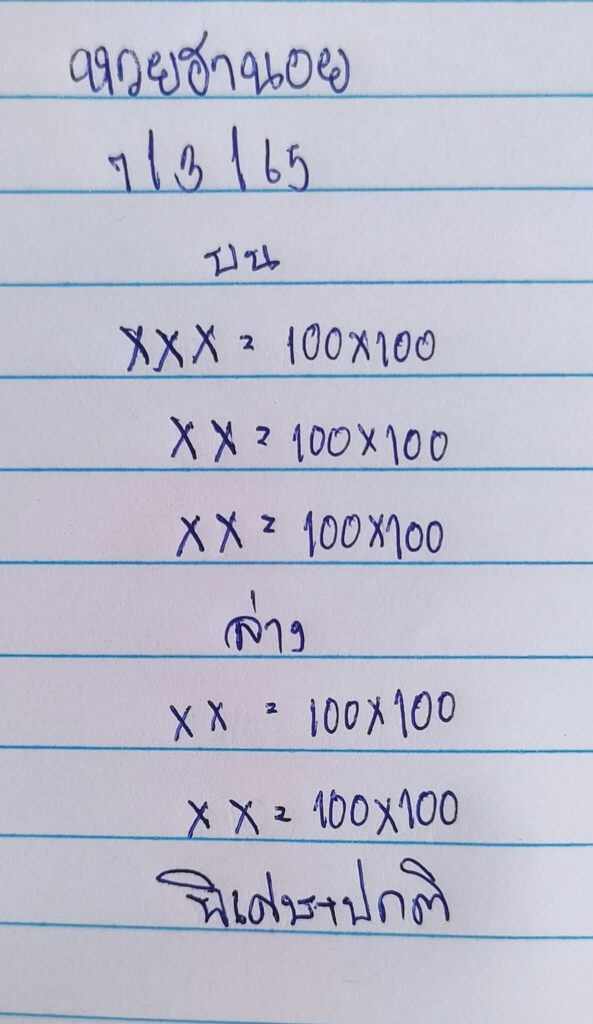 หวยฮานอย
7/3/65
บน
XXX = 100X100
XX = 100X100
XX = 100X100
ล่าง
XX = 100X100
XX = 100X100
พิเศษ+ปกติ